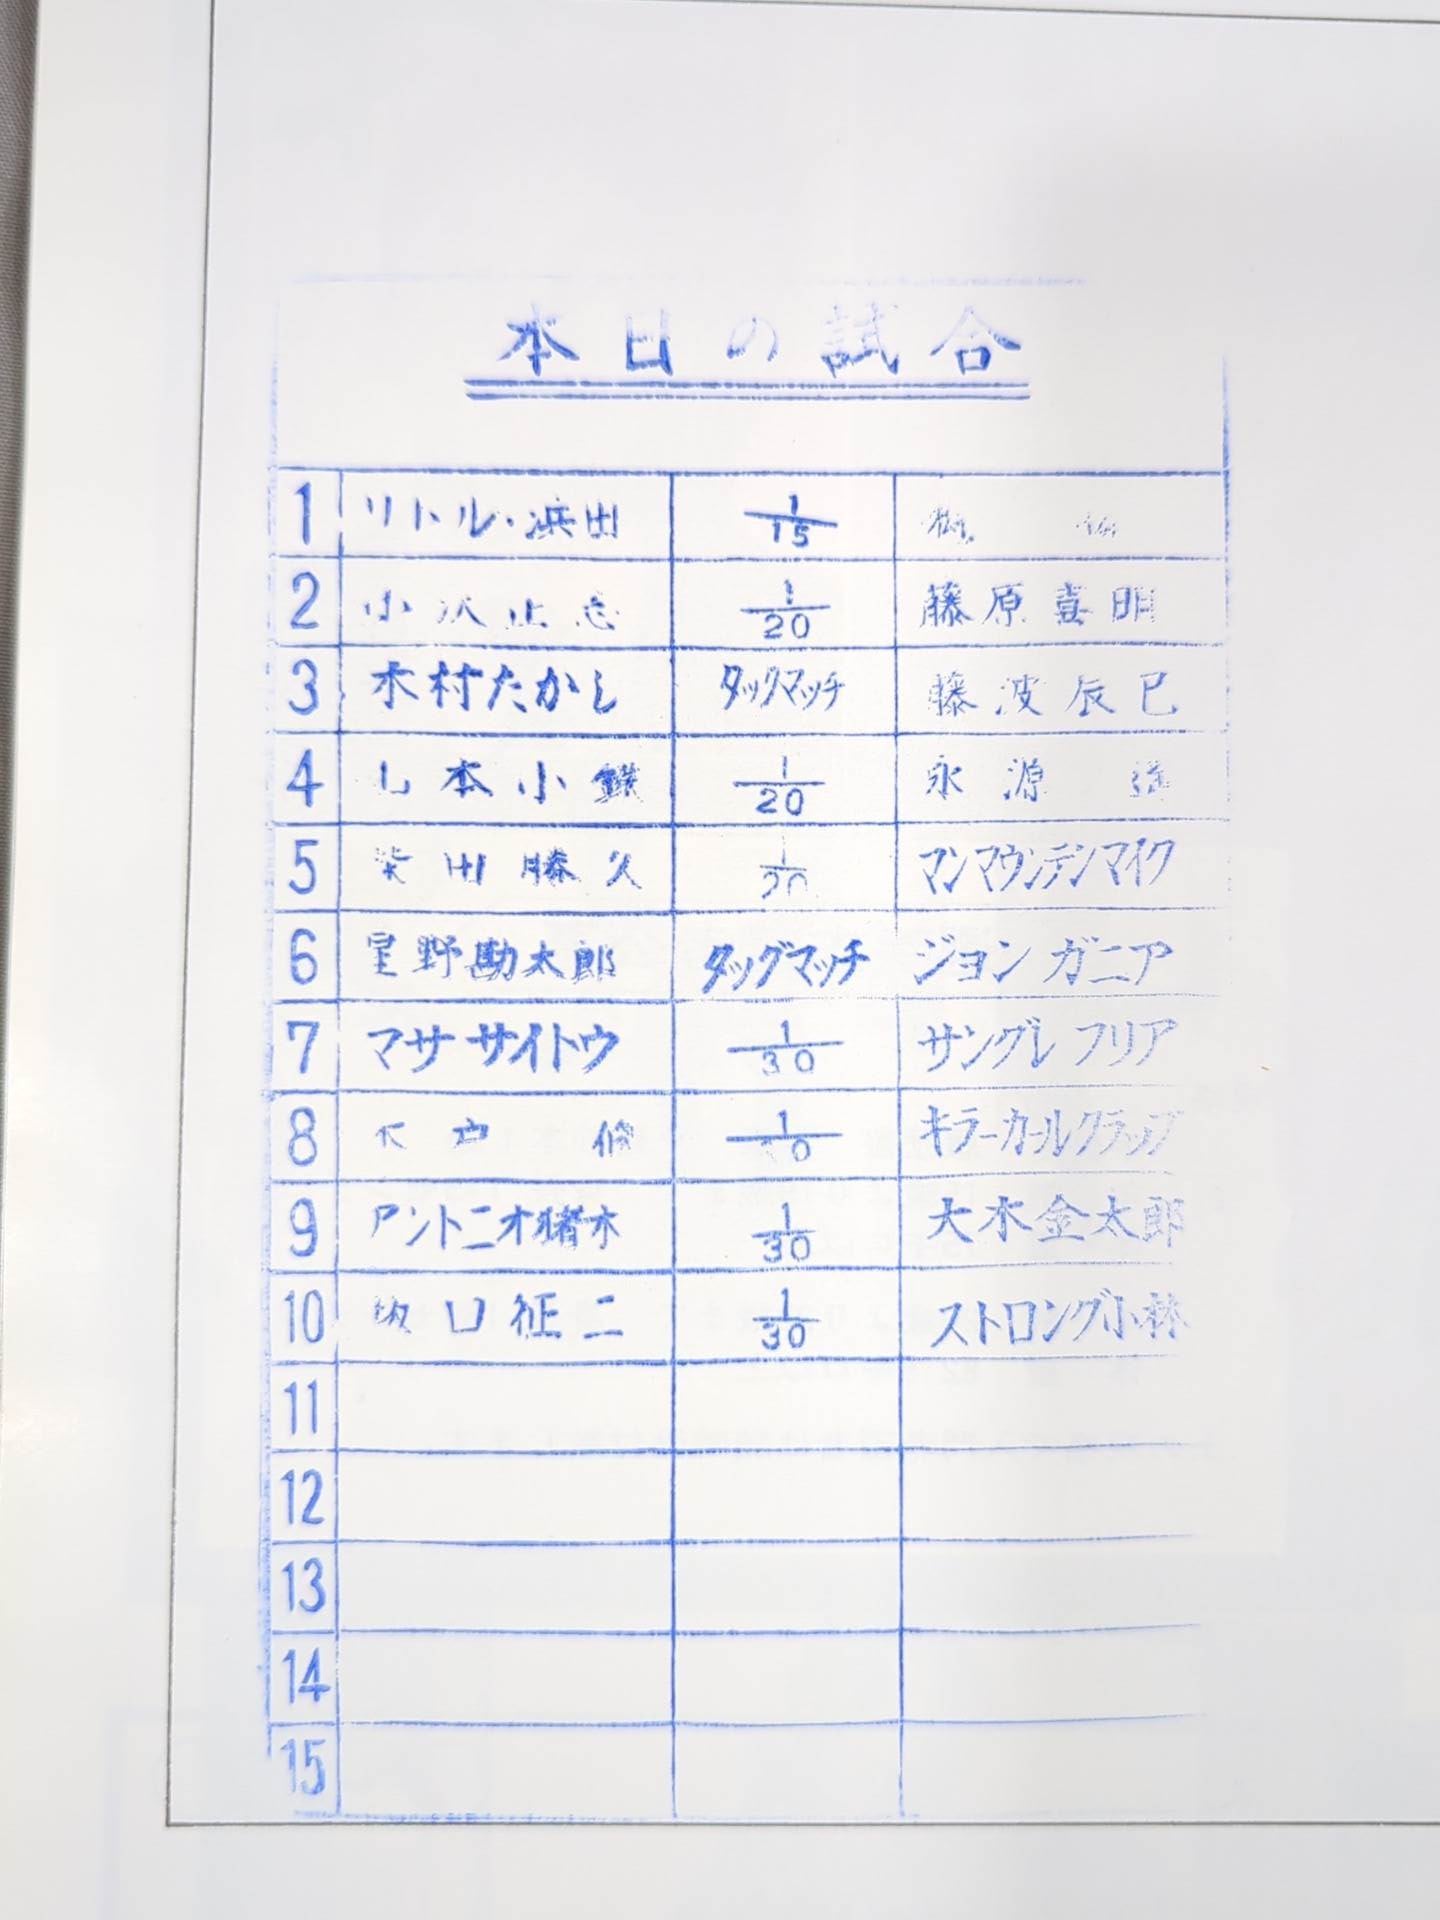 本日の試合
1 リトル・浜田 1/15
2 小沢正志 1/20 藤原喜明
3 木村たかし タッグマッチ 藤波辰巳
4 山本小鉄 1/20 永源遥
5 柴田勝久 1/20 マンマウンテンマイク
6 星野勘太郎 タッグマッチ ジョン ガニア
7 マサ サイトウ 1/30 サングレ フリア
8 木戸修 キラーカールクラップ
9 アントニオ猪木 1/30 大木金太郎
10 坂口征二 1/30 ストロング小林
11
12
13
14
15